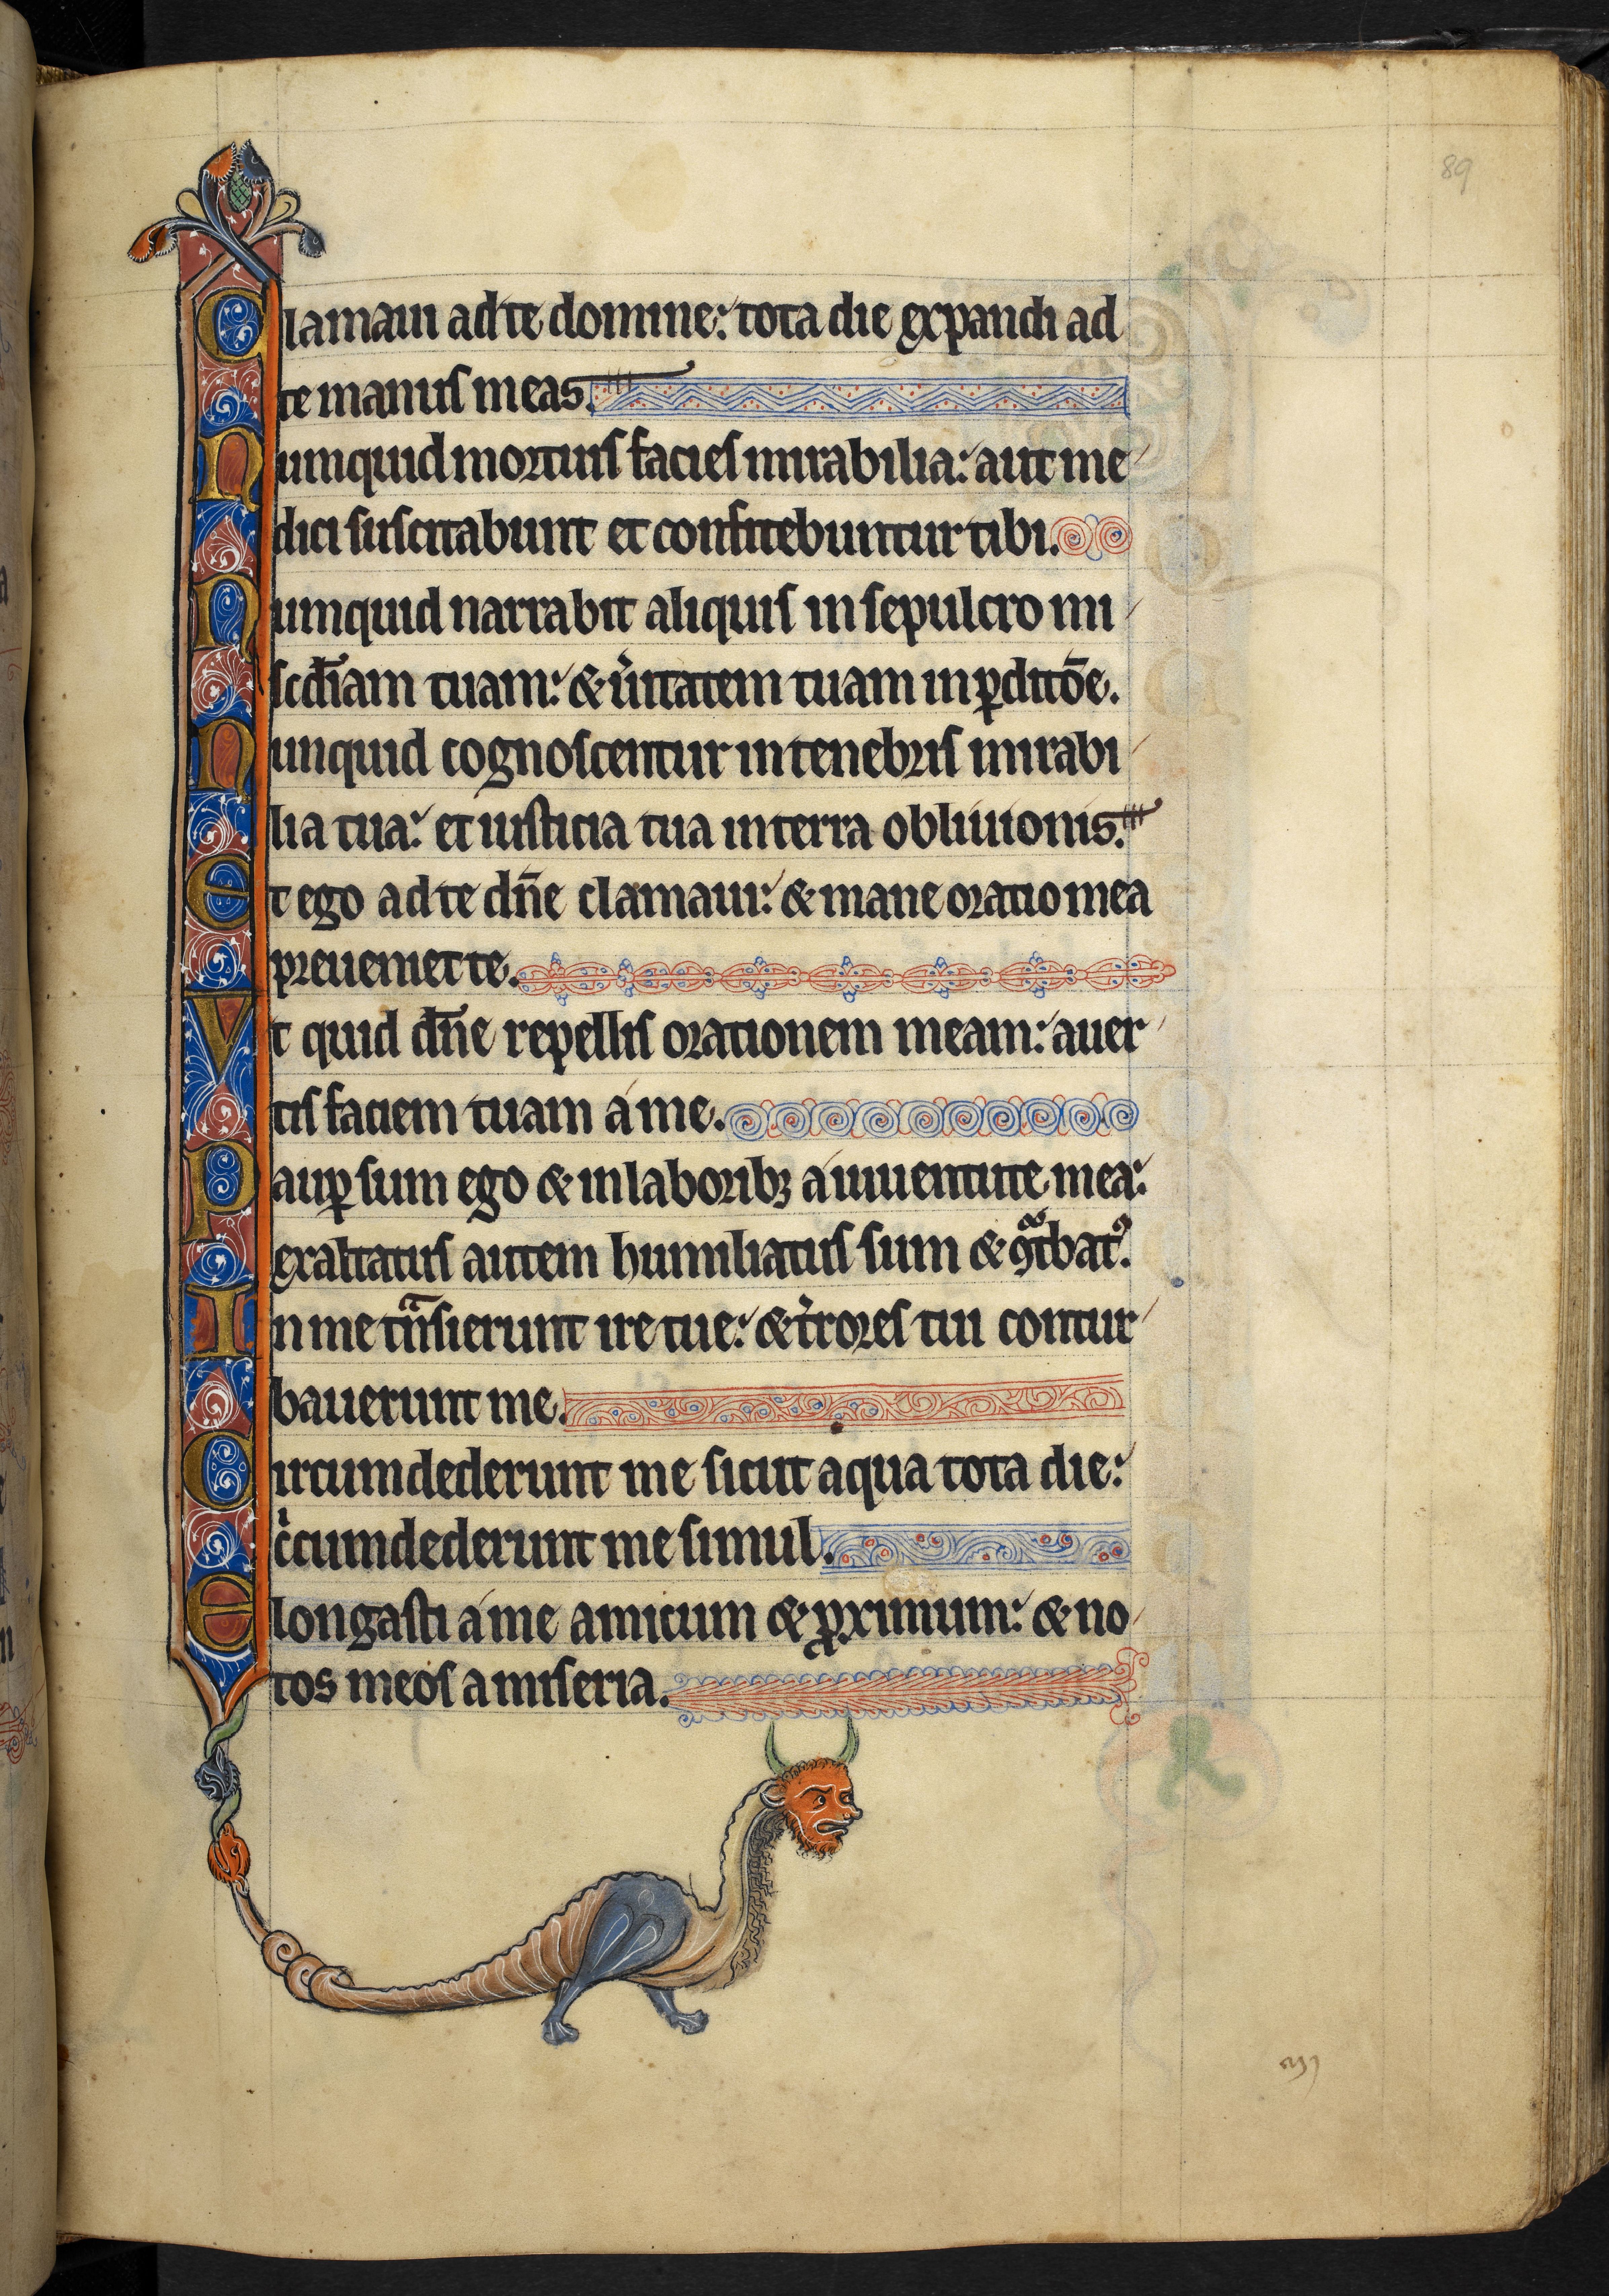 89
Clamaui ad te domine: tota die expandi ad
te manus meas.
Numquid mortuis facies mirabilia: aut me
dici suscitabunt et confitebuntur tibi.
Numquid narrabit aliquis in sepulcro mi
scd̄iam tuam: & u̓itatem tuam in ꝑditōe.
Nunquid cognoscentur in tenebris mirabi
lia tua: et iusticia tua in terra obliuionis.
Et ego ad te dn̄e clamaui: & mane oratio mea
preueniet te.
Vt quid dn̄e repellis orationem meam: auer
tis faciem tuam a me.
Pauꝑ sum ego & in laboribꝫ a iuuentute mea:
exaltatus autem humiliatus sum & ꝯtͣbatꝰ.
In me tͣnsierunt ire tue: & t̓rores tui contur
bauerunt me.
Circumdederunt me sicut aqua tota die:
cͥcumdederunt me simul.
Elongasti a me amicum & ꝓximum: & no
tos meos a miseria.